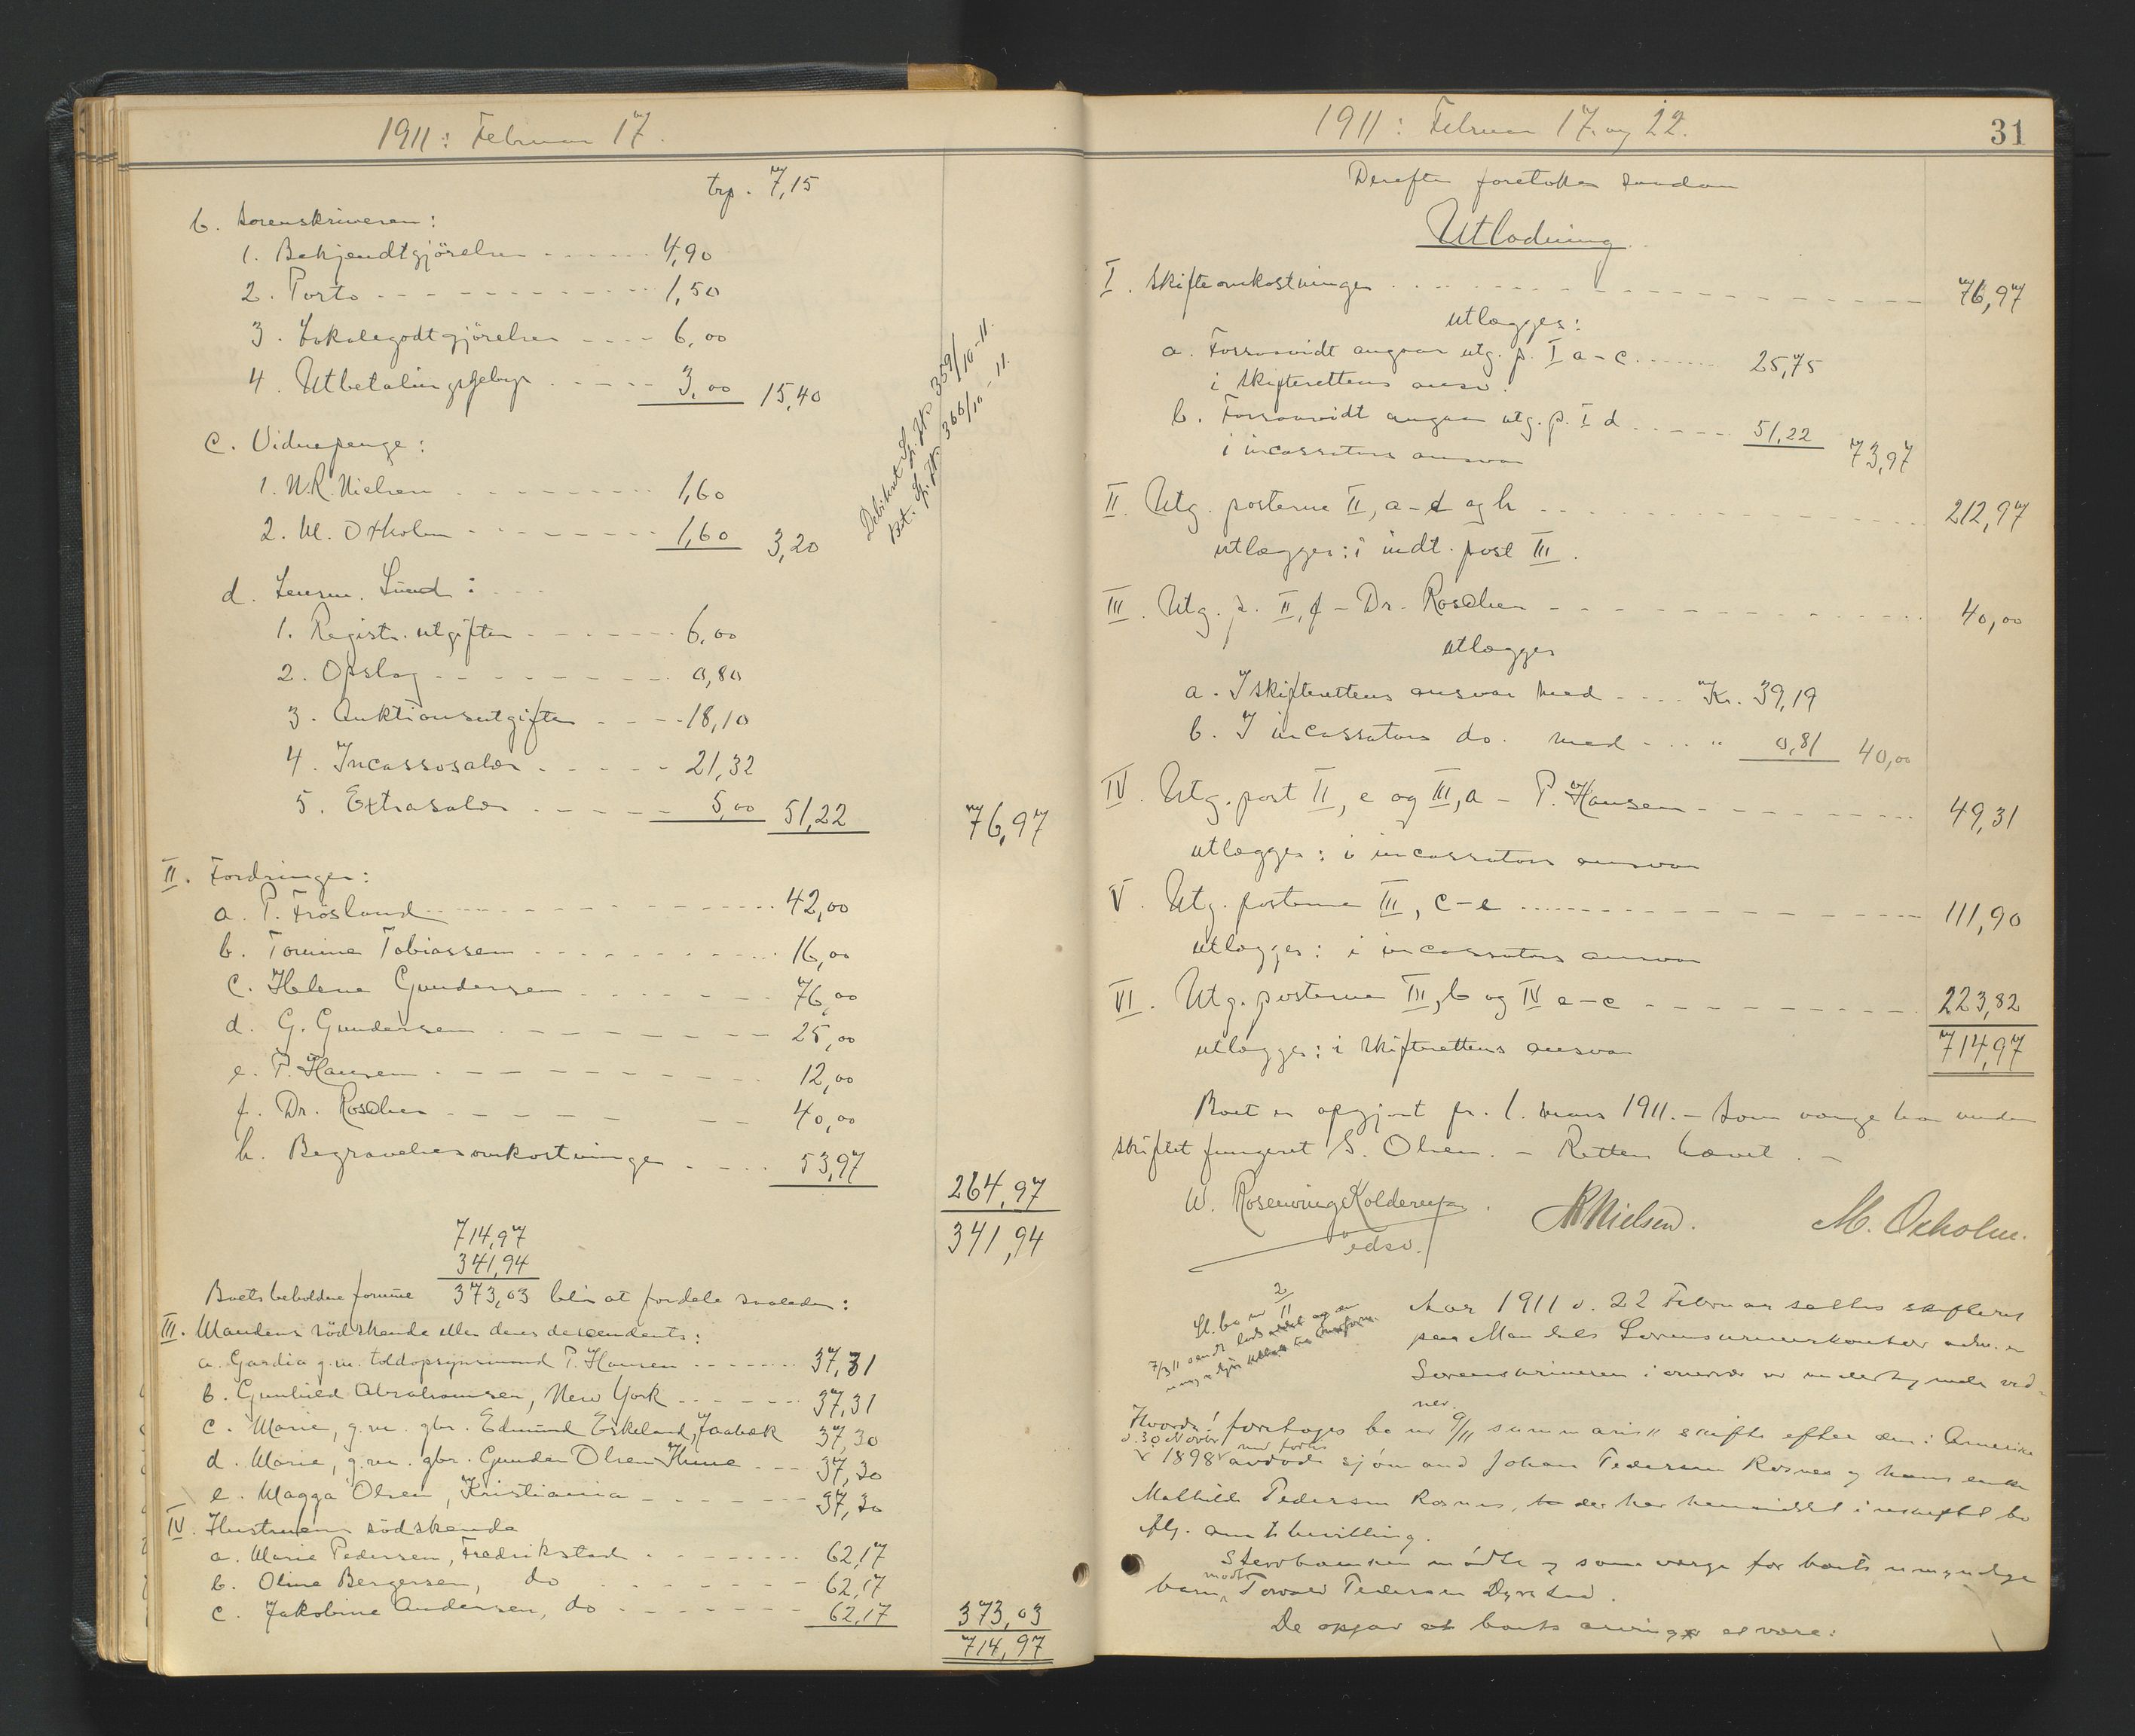 1911: Februar 17.
trp. 7,15
b. Sorenskriveren:
1. Bekjendtgjörelser 4,90
2. Porto 1,50
3. Lokalegodtgjörelse 6,00
4. Utbetalingsgebyr 3,00 15,40
c. Vidnepenge:
1. N.R. Nielsen 1,60
2. M. Oxholm 1,60 3,20
d. Lensm. Lund:
1. Registr. utgifter 6,00
2. Opslag 0,80
3. Auktionsutgifter 18,10
4. Incassosalær 21,32
5. Extrasalær 5,00 51,22 76,97
II. Fordringer:
a. P. Frösland 42,00
b. Tomine Tobiassen 16,00
c. Helene Gundersen 76,00
d. G. Gundersen 25,00
e. P. Hansen 12,00
f. Dr. Roscher 40,00
h. Begravelsesomkostninger 53,97
264,97
341,94
714,97
341,94
Boets beholdne formue 373,03 blir at fordele saaledes:
III. Mandens södskende eller deres descendents:
a. Gardia g.m. toldopsynsmand P. Hansen 37,31
b. Gunhild Abrahamsen, New York 37,31
c. Marie, g.m. gbr. Edmund Eskeland, Jaabæk 37,30
d. Marie, g.m. gbr. Gunder Olsen 37,30
e. Magga Olsen, Kristiania 37,30
IV. Hustruens södskende
a. Marie Pedersen, Fredrikstad 62,17
b. Oline Bergersen, do 62,17
c. Jakobine Andersen, do 62,17 373,03
714,97
1911: Februar 17. og 22.
31
Derefter foretokes saadan
Utlodning
I. Skifteomkostninger 76,97
utlægges:
a. Forsaavidt angaar utg. p. I a-c 25,75
i skifterettens ansv.
b. Forsaavidt angaar utg. p. I d 51,22 73,97
i incassators ansvar
II. Utg. posterne II, a-d og h 212,97
utlægges: i indt. post III.
III. Utg. p. II, f - Dr. Roscher 40,00
utlægges
a. I skifterettens ansvar med Kr. 39,19
b. I incassators do. med " 0,81 40,00
IV. Utg. post II, e og III, a - P. Hansen 49,31
utlægges: i incassators ansvar
V. Utg. posterne III, c-e 111,90
utlægges: i incassators ansvar
VI. Utg. posterne III, b og IV a-c 223,82
utlægges: i skifterettens ansvar 714,97
Boet er opgjort pr. 1. mars 1911. - Som værge har under
skiftet fungeret S. Olsen. - Retten hævet. -
W. Rosenvinge Kolderup
edsv.
NRNielsen.
M. Oxholm.
Aar 1911 d. 22 Februar sattes skifteret
paa Mandals Sorenskriverkontor adm. av
Sorenskriveren i overvær av undertegnede vid-
ner.
Hvorda: foretoges bo nr 9/11 summarisk skifte efter den i Amerika
d. 30 Novbr
1898 avdøde sjömand Johan Pedersen Rosnes og hans enke
Mathilde Pedersen Rosnes, der har hensiddet i uskiftet bo
iflg. amtsbevilling.
Stervboenken mödte og som værge for boets umyndige
barn, mødte Torvald Pedersen
De opgav at boets arvinger er være: